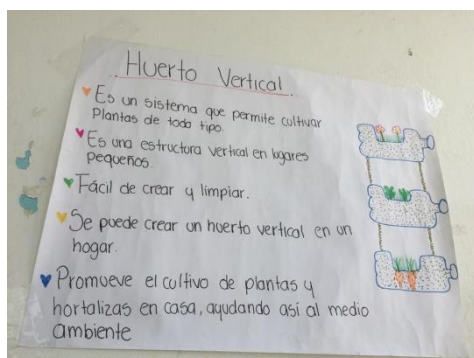 Huerto Vertical.
Es un sistema que permite cultivar
Plantas de todo tipo.
Es una estructura vertical en lugares
pequeños.
Fácil de crear y limpiar.
Se puede crear un huerto vertical en un
hogar.
Promueve el cultivo de plantas y
hortalizas en casa, ayudando así al medio
ambiente